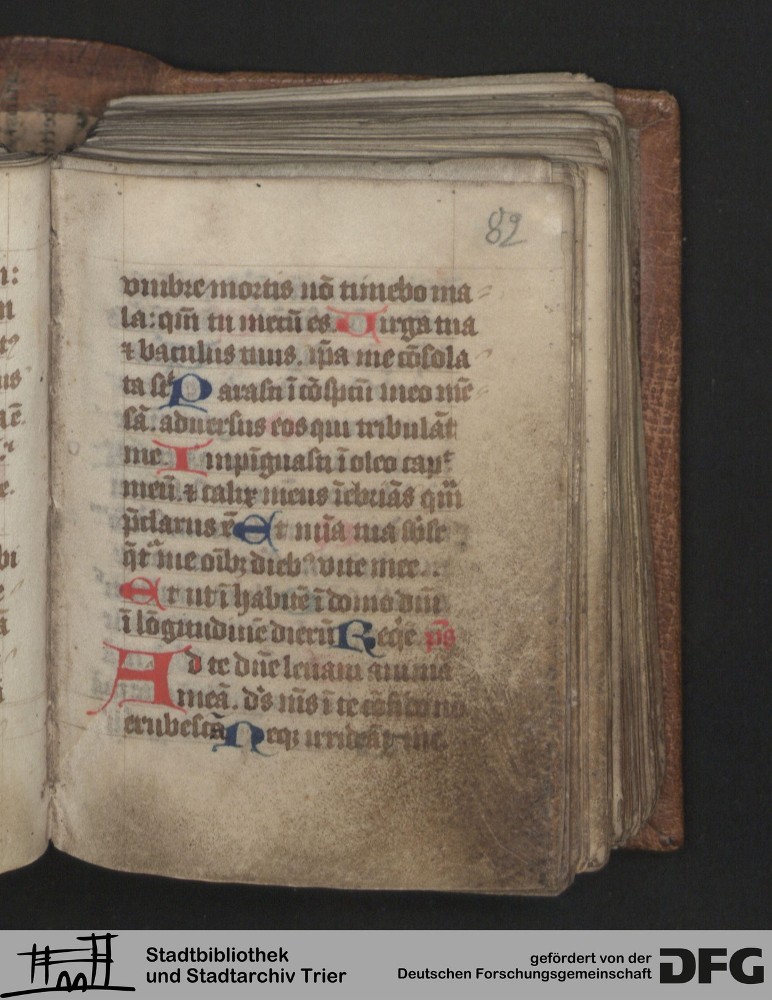 82
vmbre mortis nō timebo ma
la: qm̄ tu mecū es. Virga tua
⁊ baculus tuus. ip̄a me cōsola
ta st̄ Parasti ī cōspcū meo mē
sā. aduersus eos qui tribulāt
me. Impīguasti ī oleo capt
meū. ⁊ calix meus īebriās qm̄
p̄clarus ē Et mīa tua
me oībꝫ diebꝰ vite mee.
Et ut ī habitē ī domo dn̄i
ī lōgitudinē dierū Req̄e ps̄
Ad te dn̄e leuaui anima
meā. ds̄ ms̄ ī te cōfido no
erubescā Neqꝫ irrideāt me
Stadtbibliothek
und Stadtarchiv Trier
gefördert von der
Deutschen Forschungsgemeinschaft
DFG